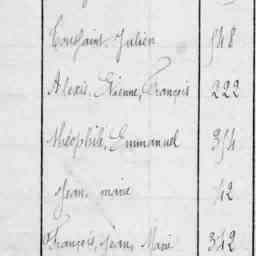 Toussaint, Julien 548
Alexis, Etienne, François 222
Théophile, Emmanuel 354
Jean, marie 512
François, Jean, Marie 312